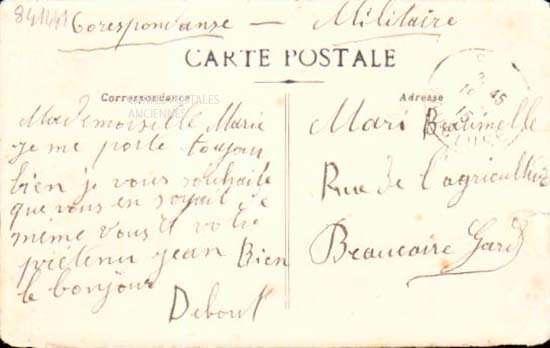 841441
Corespondanse — Militaire
CARTE POSTALE
Correspondance
CARTES POSTALES
ANCIENNES
Mademoiselle Marie
je me porte toujour
bien je vous souhaite
que vous en soyait de
même vous et votre
pretenu jean Bien
le bonjour
Deboul
Adresse
Mari
Rue de l'agriculteur
Beaucaire Gard